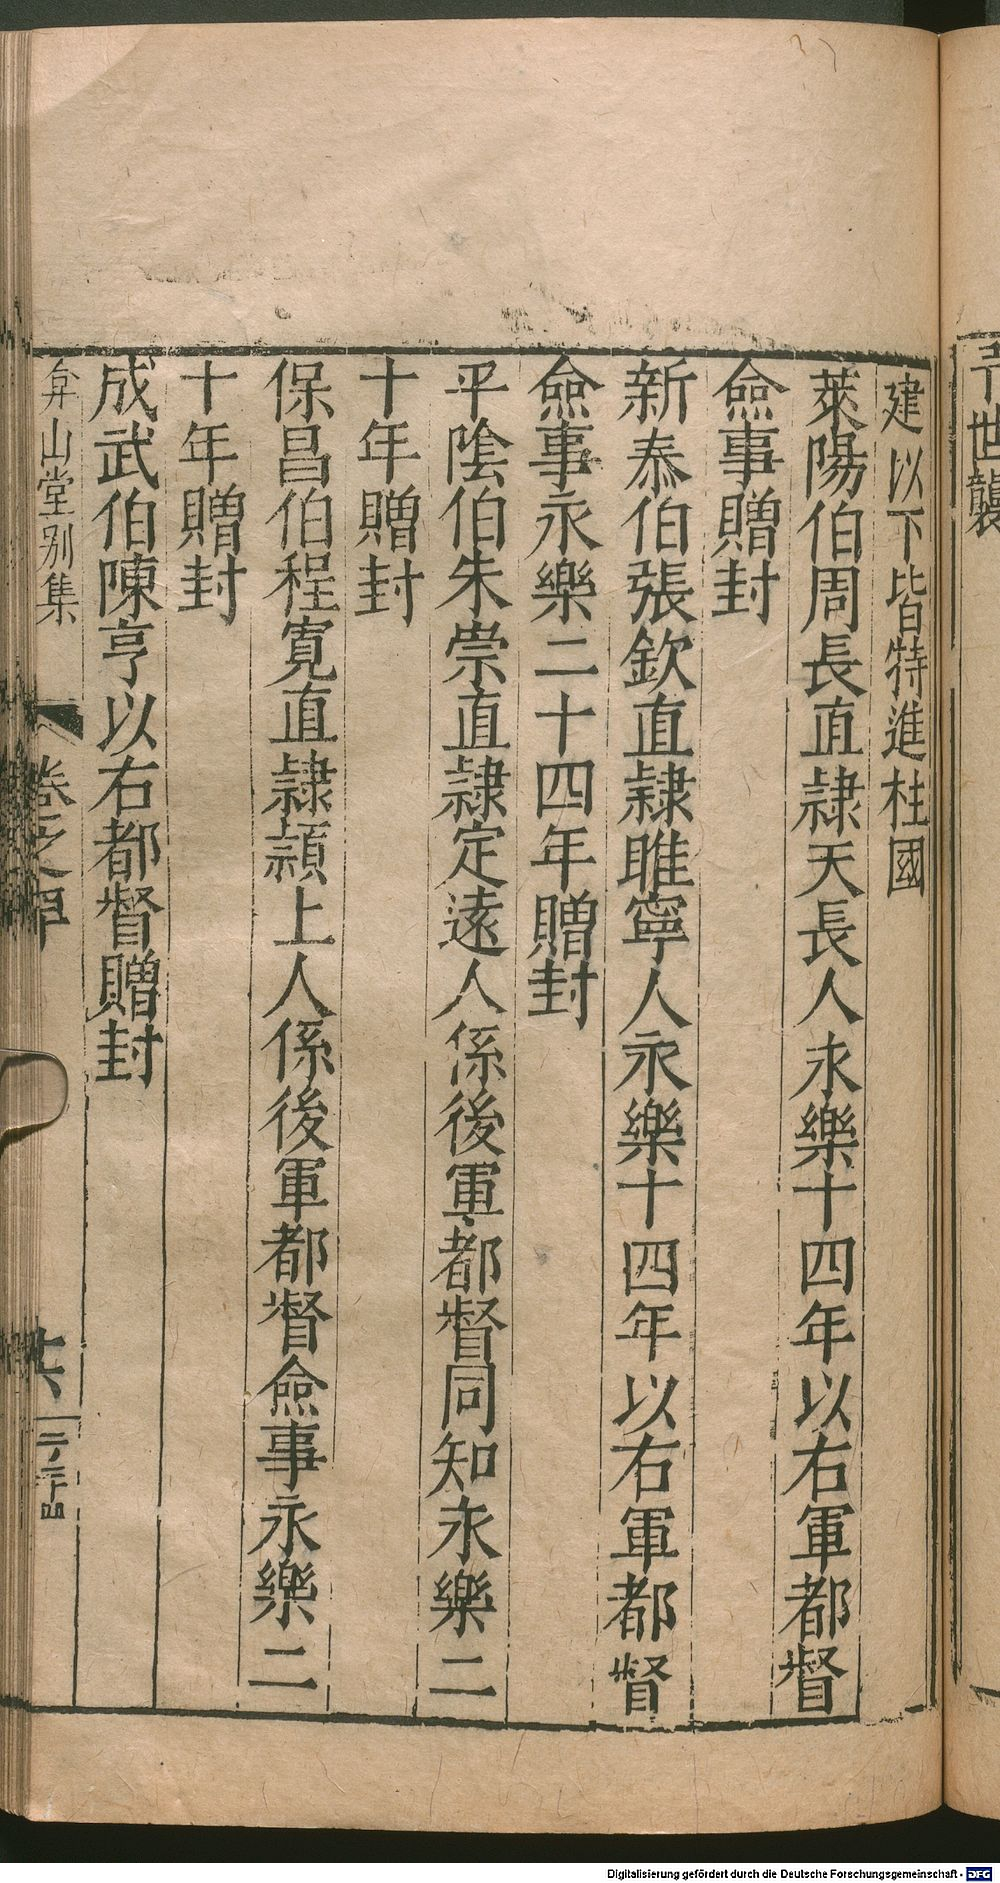 子世襲
建以下皆特進柱國
萊陽伯周長直隷天長人永樂十四年以右軍都督
僉事贈封
新泰伯張欽直隷睢寧人永樂十四年以右軍都督
僉事永樂二十四年贈封
平隂伯朱崇直隷定遠人係後軍都督同知永樂二
十年贈封
保昌伯程寛直隷潁上人係後軍都督僉事永樂二
十年贈封
成武伯陳亨以右都督贈封
弇山堂别集
卷之
六
Digitalisierung gefördert durch die Deutsche Forschungsgemeinschaft - DFG